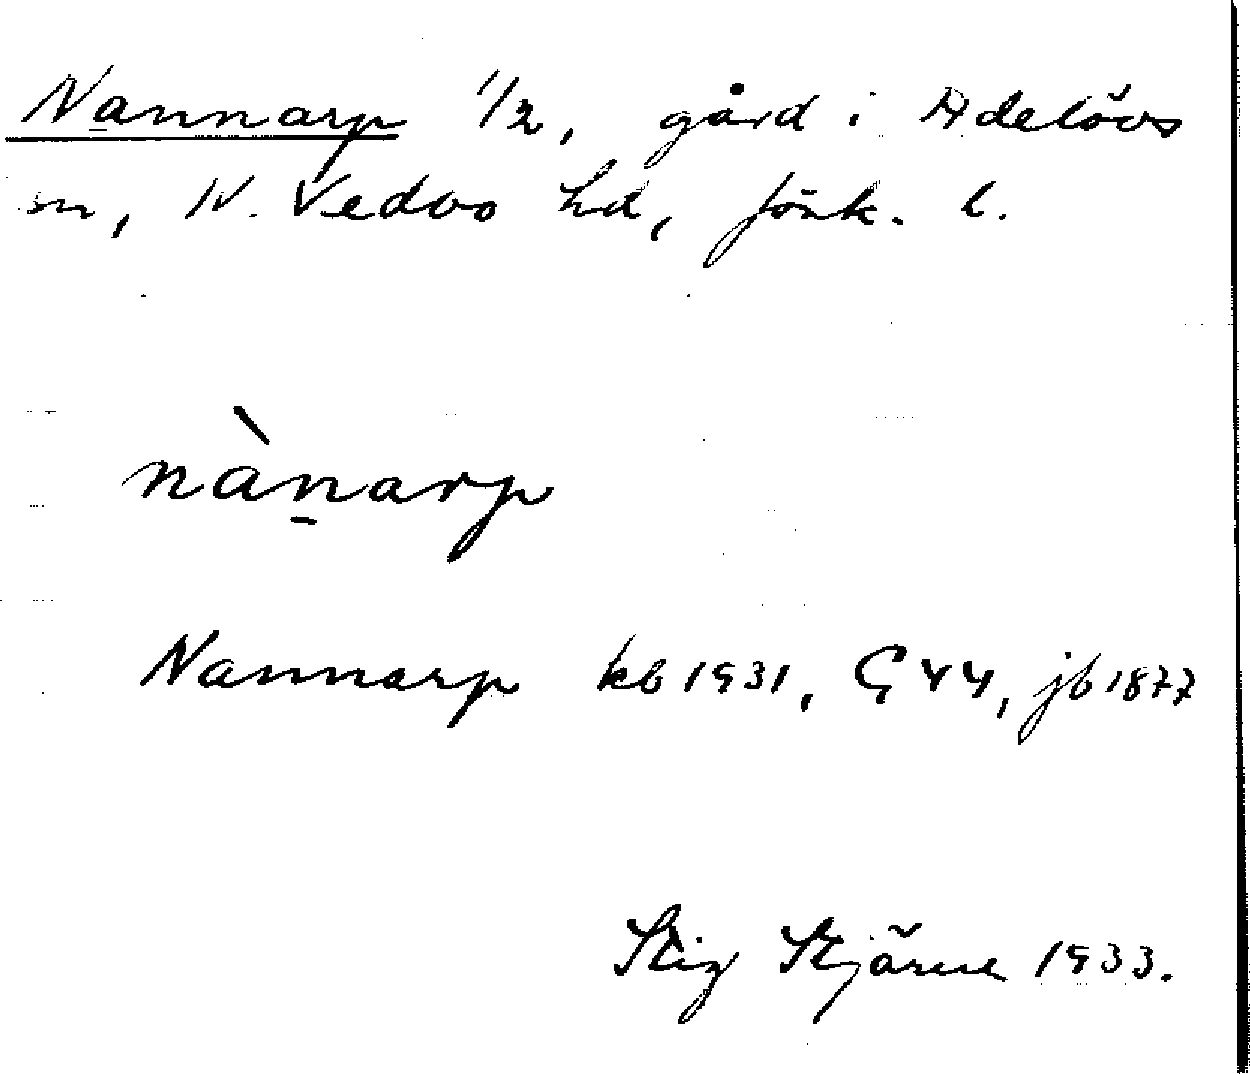 Nannarp 1/2, gård i Adelövs
sn, N. Vedbo hd, Jönk. l.
nàn̠arp
Nannarp kb 1931, G44, jb 1877
Stig Stjärne 1933.